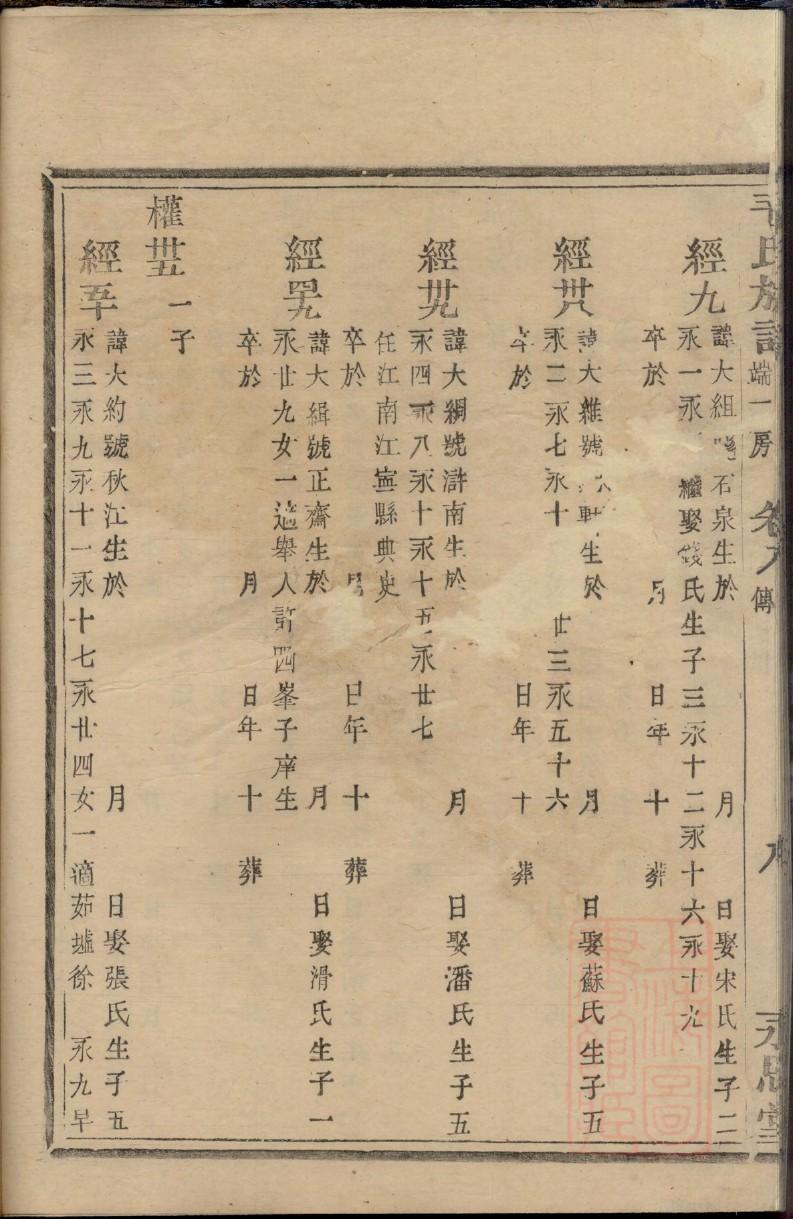 毛氏族譜 端一房 卷八 傳 八 永思堂
經九
諱大組 石泉生於 月 日娶宋氏生子二
永一永 繼娶錢氏生子三永十二永十六永十九
卒於 月 日年十 葬
經廿八
諱大雜號 軒生於 月 日娶蘇氏生子五
永二永七永十 廿三永五十六
卒於 日年十 葬
經廿九
諱大綱號滸南生於 月 日娶潘氏生子五
永四永八永十永十五永廿七
任江南江寧縣典史
卒於 月 日年十 葬
經四九
諱大緝號正齋生於 月 日娶滑氏生子一
永廿九女一適舉人許四峯子庠生
卒於 月 日年十 葬
權廿五 一子
經五十
諱大約號秋江生於 月 日娶張氏生子五
永三永九永十一永十七永廿四女一適茹墟徐 永九早